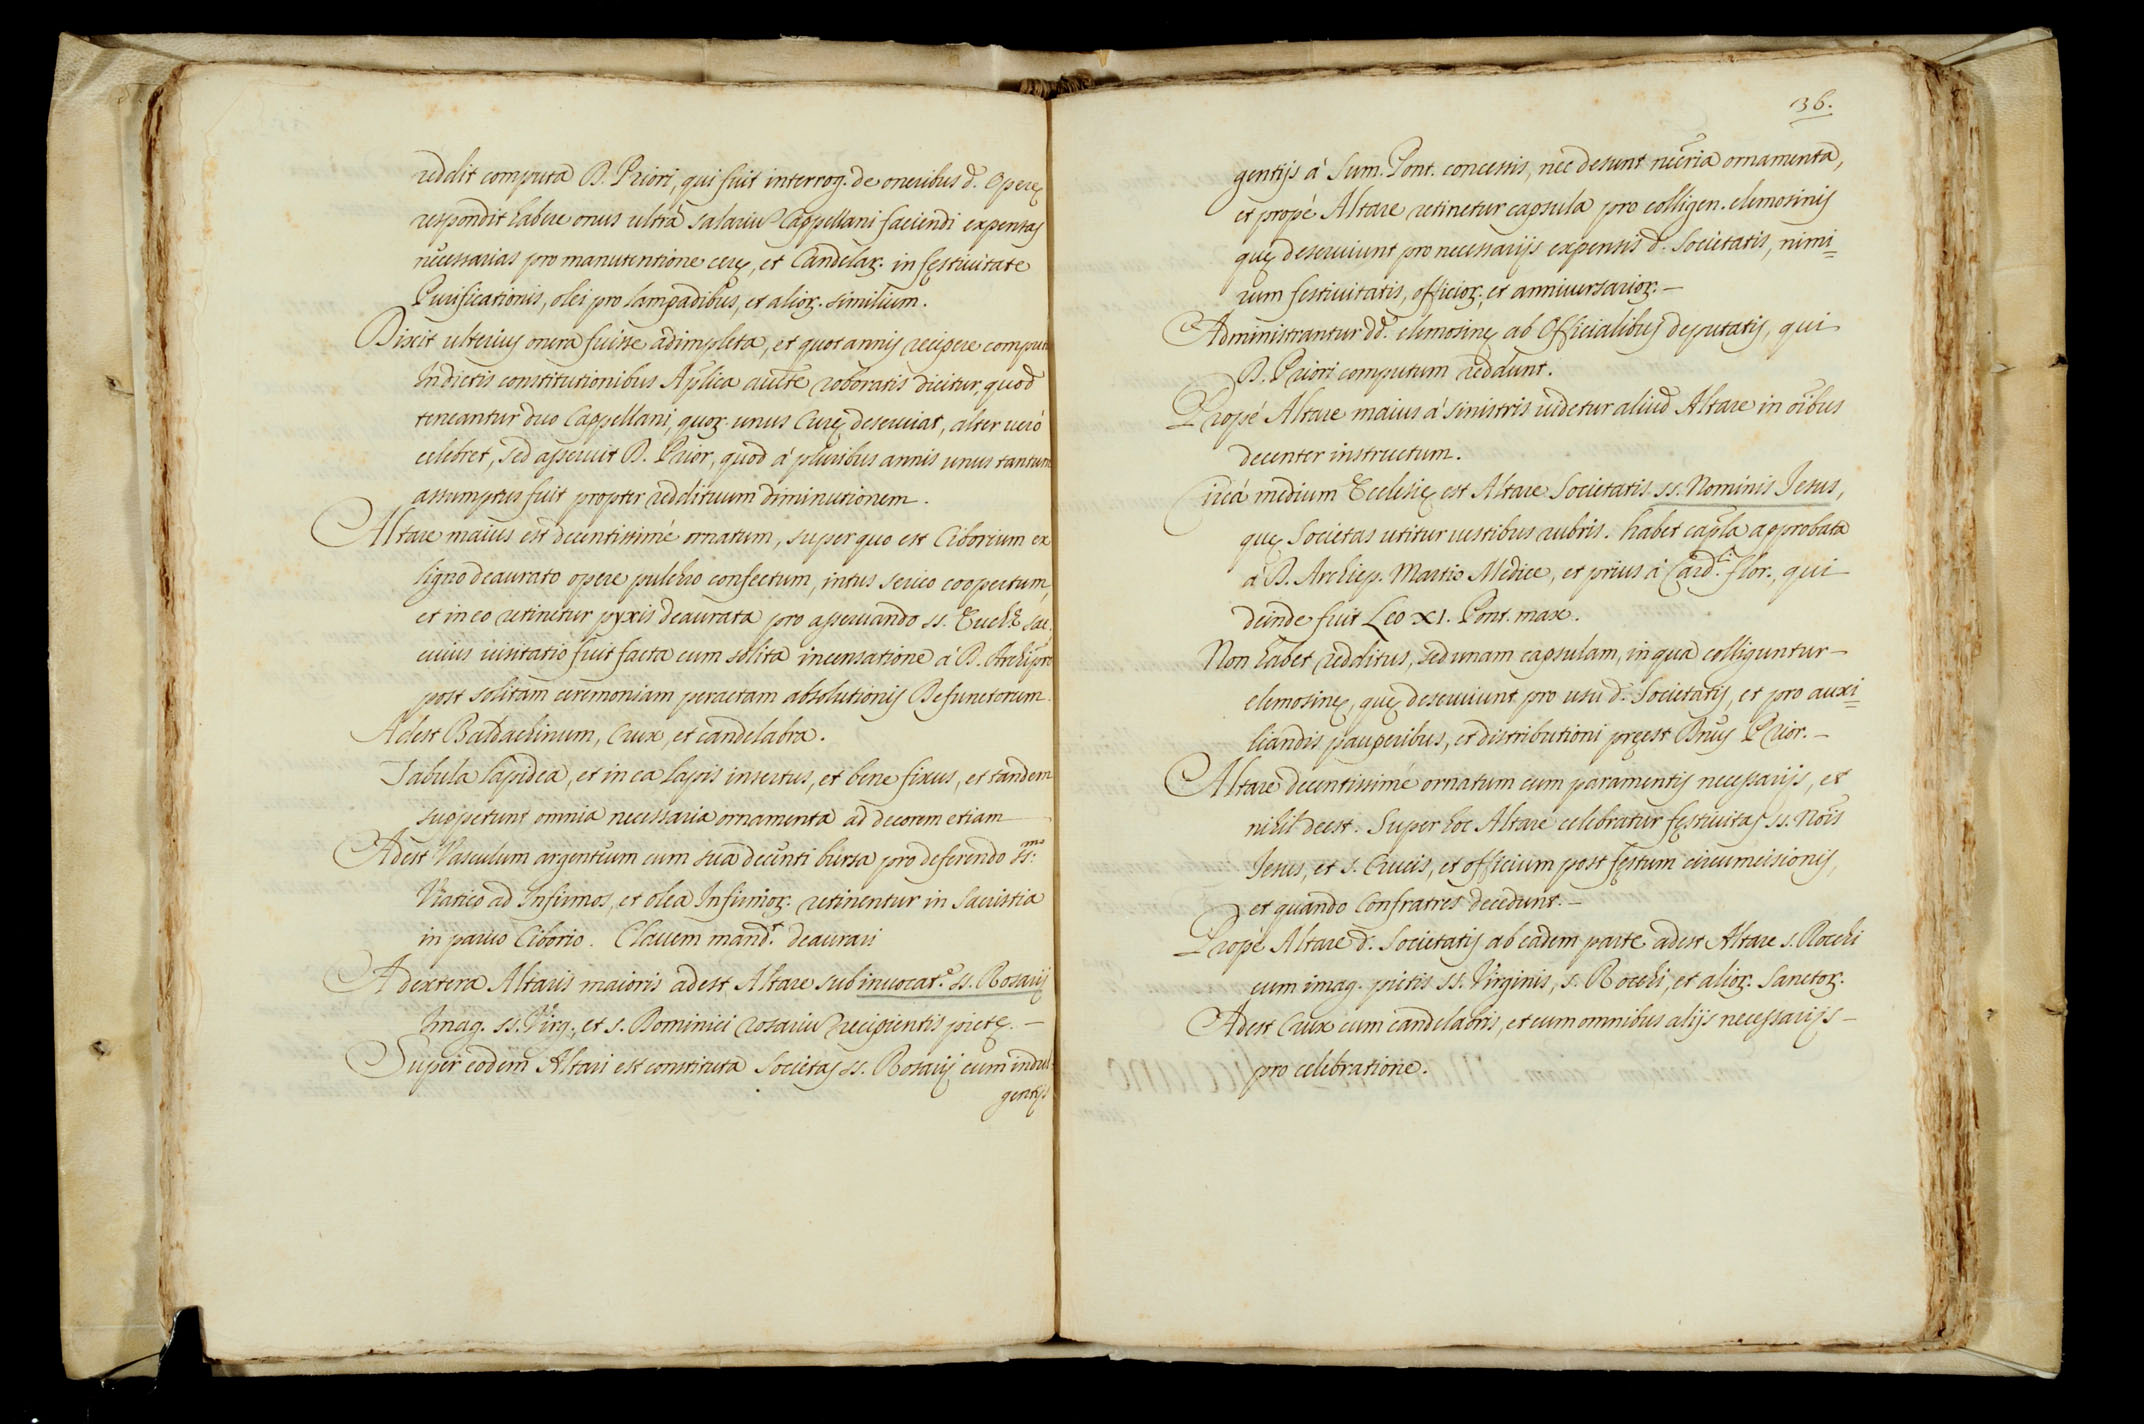 reddit computa D. Priori, qui fuit interrog. de oneribus d. Operę
respondit habere onus ultrà salariũ Cappellani faciendi expensas
necessarias pro manutentione cerę, et Candelar. in festivitate
Purificationis, olei pro lampadibus, et alior. similium.
Dixit ulterius onera fuisse adimpleta, et quot annis recipere comput
In dictis constitutionibus Aplica aucte roboratis dicitur, quod
teneantur duo Cappellani, quor. unus Curę deserviat, alter verò
celebret, sed asseruit D. Prior, quod à pluribus annis unus tantum
assumptus fuit propter reddituum diminutionem.
Altare maius est decentissimè ornatum, super quo est Ciborium ex
ligno deaurato opere pulchro confectum, intus serico coopertum,
et in eo retinetur pyxis deaurata pro asservando ss. Euch.ę sac.
cuius visitatio fuit facta cum solita incensatione à D. Archipro
post solitam ceremoniam peractam absolutionis Defunctorum.
Adest Baldachinum, Crux, et candelabra.
Tabula lapidea, et in ea lapis insertus, et bene fixus, et tandem
suppetunt omnia necessaria ornamenta ad decorem etiam
Adest Vasculum argenteum cum sua decenti bursa pro deferendo ss.mo
Viatico ad Infirmos, et olea Infirmor. retinentur in Sacristia
in parvo Ciborio. Clavem mand.t deaurari
A dextera Altaris maioris adest Altare sub invocat.e ss. Rosarij
Imag. ss. Virg., et s. Dominici rosariũ recipientis pictę. —
Super eodem Altari est constituta Societas ss. Rosarij cum indul-
gentijs
136.
gentijs à Sum. Pont. concessis, nec desunt nec̃ria ornamenta,
et propè Altare retinetur capsula pro colligen. elemosinis
quę deserviunt pro necessarijs expensis d. Societatis, nimi=
rum festivitatis, officior., et anniversarior. —
Administrantur dd. elemosinę ab Officialibus deputatis, qui
D. Priori computum reddunt.
Propè Altare maius à sinistris videtur aliud Altare in oĩbus
decenter instructum.
Circà medium Ecclesię est Altare Societatis ss. Nominis Iesus,
quę Societas utitur vestibus rubris. habet capla approbata
à D. Archiep. Martio Medice, et prius à Card.li flor., qui
deinde fuit Leo XI. Pont. max.
Non habet redditus, sed unam capsulam, in qua colliguntur —
elemosinę, quę deserviunt pro usu d. Societatis, et pro auxi=
liandis pauperibus, et distributioni pręest Dñus Prior. —
Altare decentissimè ornatum cum paramentis necessarijs, et
nihil deest. Super hoc Altare celebratur festivitas ss. Nõis
Iesus, et s. Crucis, et officium post festum circumcisionis,
et quando Confratres decedunt. —
Propè Altare d. Societatis ab eadem parte adest Altare s. Rocchi
cum imag. pictis ss. Virginis, s. Rocchi, et alior. Sanctor.
Adest Crux cum candelabris, et cum omnibus alijs necessarijs —
pro celebratione.